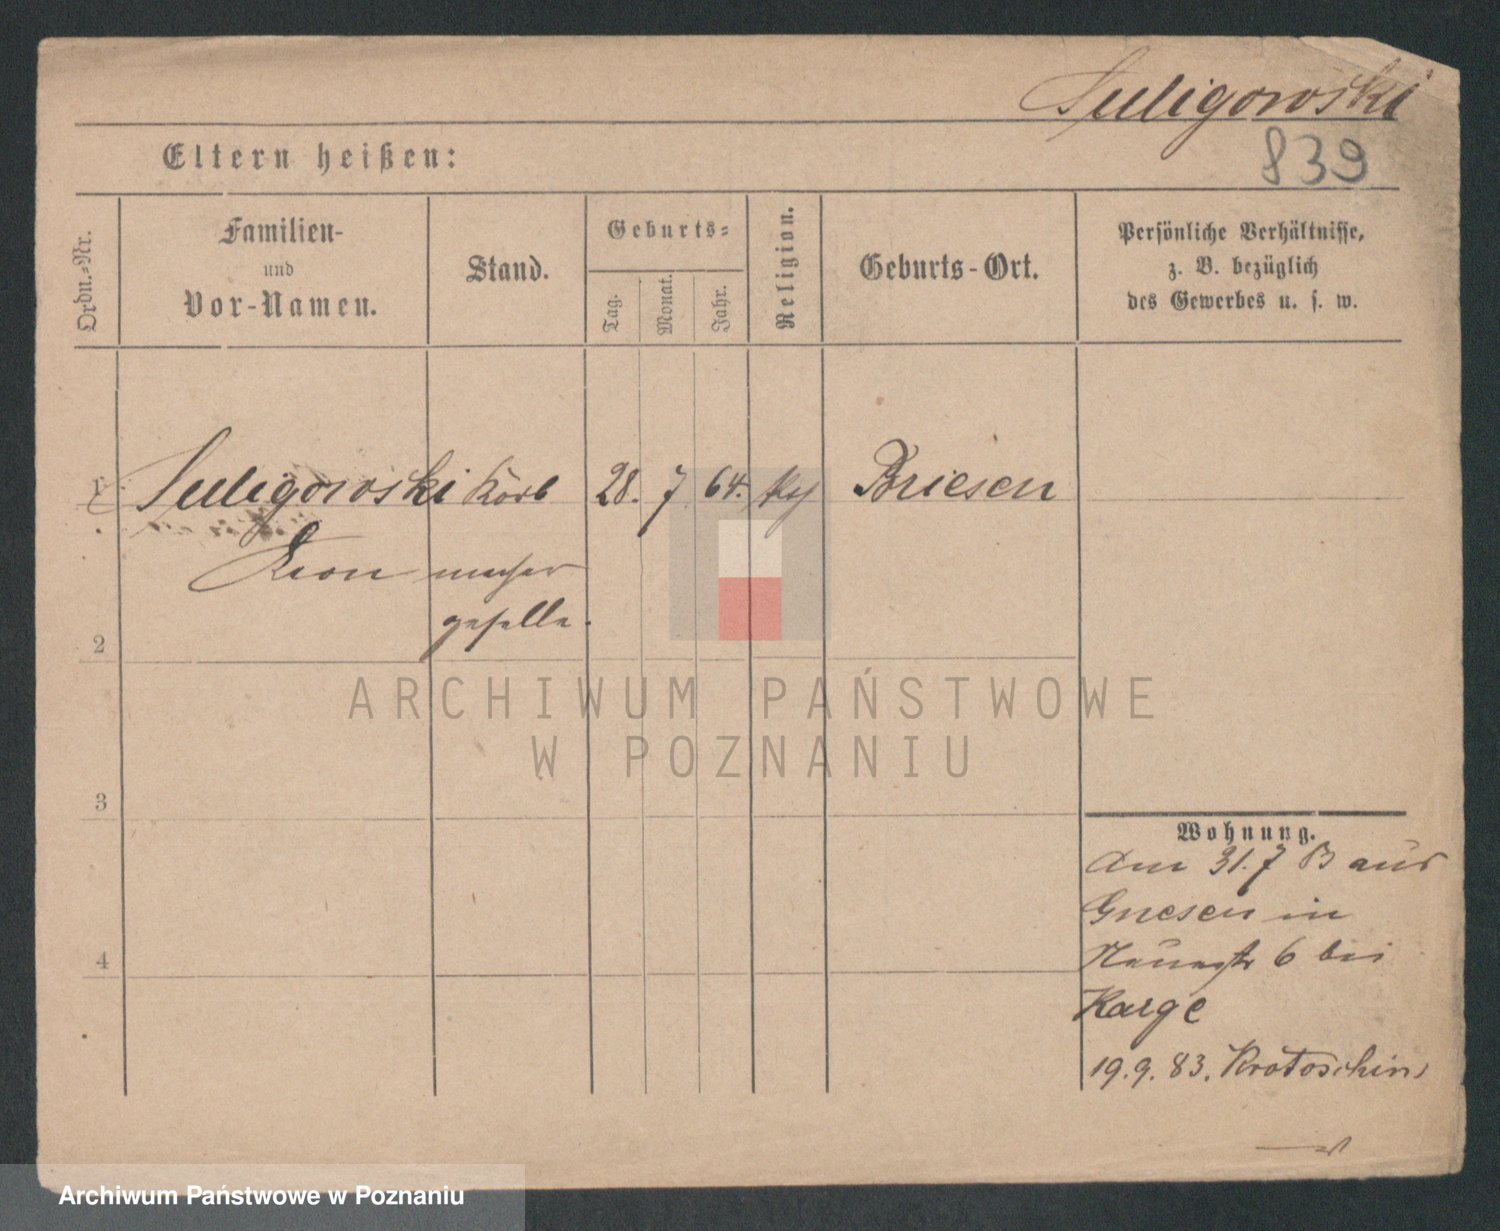 Suligowski
839
Eltern heißen:
Ordn.=Nr.
Familien-
und
Vor-Namen.
Stand.
Geburts=
Tag.
Monat.
Jahr.
Religion.
Geburts-Ort.
Persönliche Verhältnisse,
z. B. bezüglich
des Gewerbes u. s. w.
1 Suligowski Korb 28. 7 64. Briesen
Leon macher
geselle.
2
ARCHIWUM PAŃSTWOWE
W POZNANIU
3
Wohnung.
Am 31. 7 aus
Gnesen in
6 bei
4
Karge
19. 9. 83. Krotoschin
Archiwum Państwowe w Poznaniu